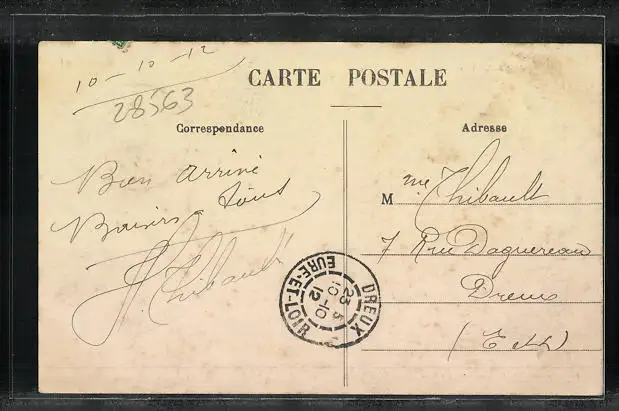 10-10-12
28563
CARTE POSTALE
Correspondance
Bien arrivé
Baisers tous
Thibault
Adresse
Mme Thibault
7 Rue Daguereau
Dreux
(E et L)
DREUX
23
10-10
12
EURE-ET-LOIR